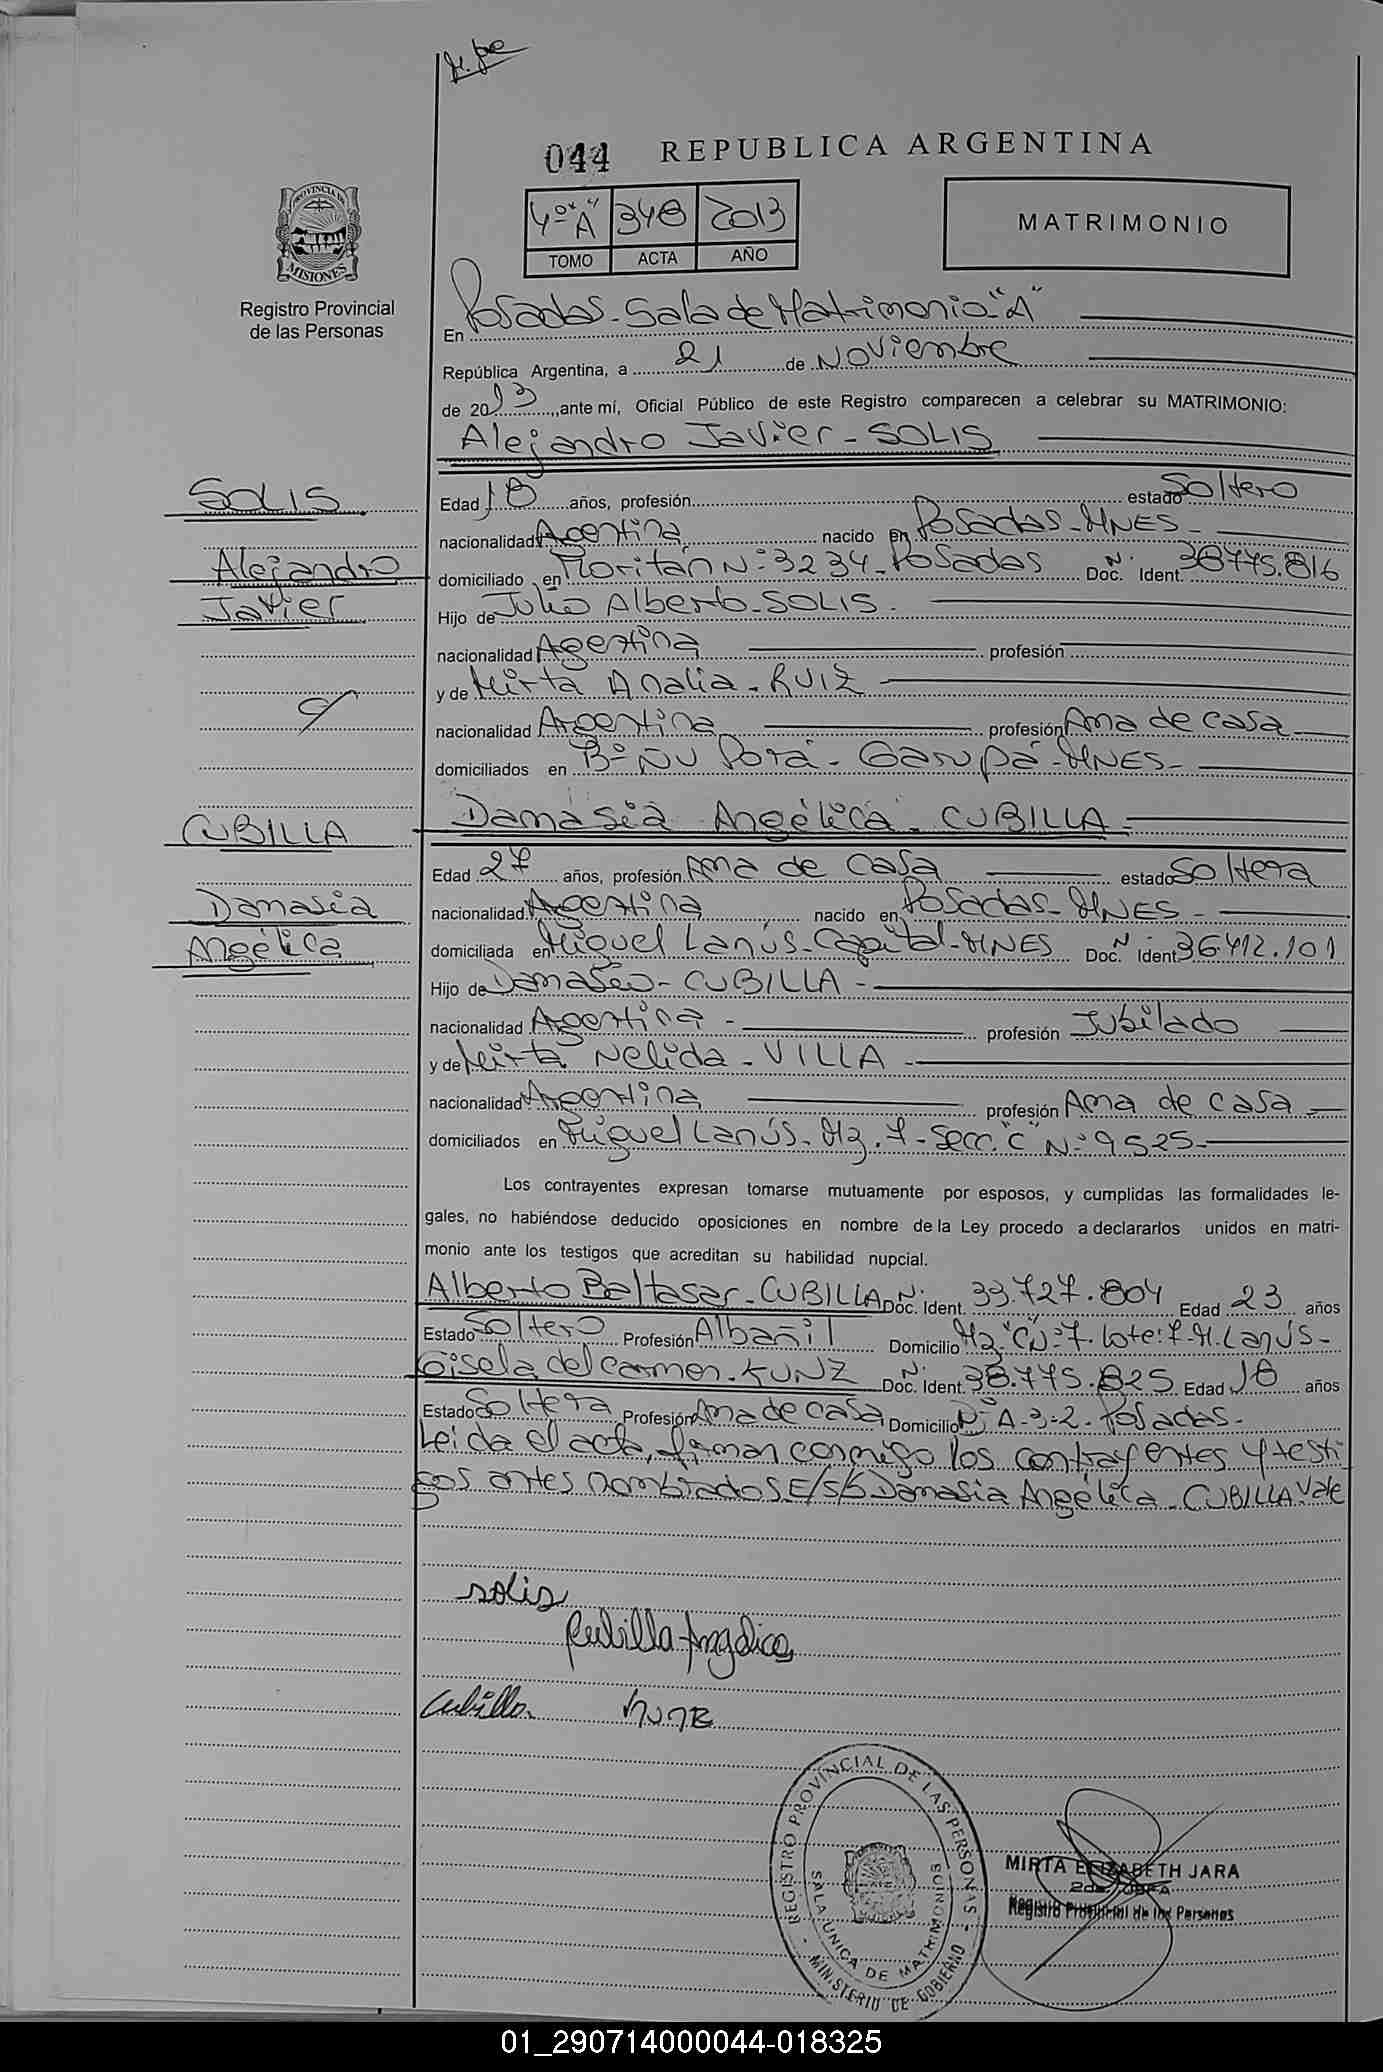 044 REPUBLICA ARGENTINA
PROVINCIA DE
MISIONES
Registro Provincial
de las Personas
4º "A" 348 2013
TOMO ACTA AÑO
MATRIMONIO
En Posadas - Sala de Matrimonio "A"
República Argentina, a 21 de Noviembre
de 2013, ante mí, Oficial Público de este Registro comparecen a celebrar su MATRIMONIO:
Alejandro Javier - SOLIS
SOLIS
Alejandro
Javier
c/
Edad 18 años, profesión estado Soltero
nacionalidad Argentina nacido en Posadas - MNES -
domiciliado en N: 3234 - Posadas Doc. N. Ident. 38775.816
Hijo de Julio Alberto - SOLIS -
nacionalidad Argentina profesión
y de Mirta Analia - RUIZ
nacionalidad Argentina profesión Ama de casa
domiciliados en Bº ÑU Porá - Garupá - MNES -
Damasia Angélica - CUBILLA -
CUBILLA
Damasia
Angélica
Edad 27 años, profesión Ama de casa estado Soltera
nacionalidad Argentina nacido en Posadas - MNES -
domiciliada en Miguel Lanús - Capital - MNES Doc. N. Ident. 36412.101
Hijo de Damaseo - CUBILLA -
nacionalidad Argentina - profesión Jubilado
y de Mirta Nelida - VILLA -
nacionalidad Argentina profesión Ama de casa
domiciliados en Miguel Lanús - Mz. 7 - Secc. "C" N: 9525 -
Los contrayentes expresan tomarse mutuamente por esposos, y cumplidas las formalidades le-
gales, no habiéndose deducido oposiciones en nombre de la Ley procedo a declararlos unidos en matri-
monio ante los testigos que acreditan su habilidad nupcial.
Alberto Baltasar - CUBILLA Doc. N. Ident. 33727.804 Edad 23 años
Estado Soltero Profesión Albañil Domicilio Mz "C" N: 7 - Lote: 7 - M. Lanús -
Gisela del Carmen - KUNZ Doc. N. Ident. 38.775.825 Edad 18 años
Estado Soltera Profesión Ama de casa Domicilio A-3-2 - Posadas -
Leida el acta, firman conmigo los contrayentes y testi
gos antes nombrados. E/S/b Damasia Angélica - CUBILLA Vale
solis
Cubilla Angelica
Cubilla Kunz
REGISTRO PROVINCIAL DE LAS PERSONAS
SALA UNICA DE MATRIMONIOS
MINISTERIO DE GOBIERNO
MIRTA ELIZABETH JARA
2da. JEFA
Registro Provincial de las Personas
01_290714000044-018325